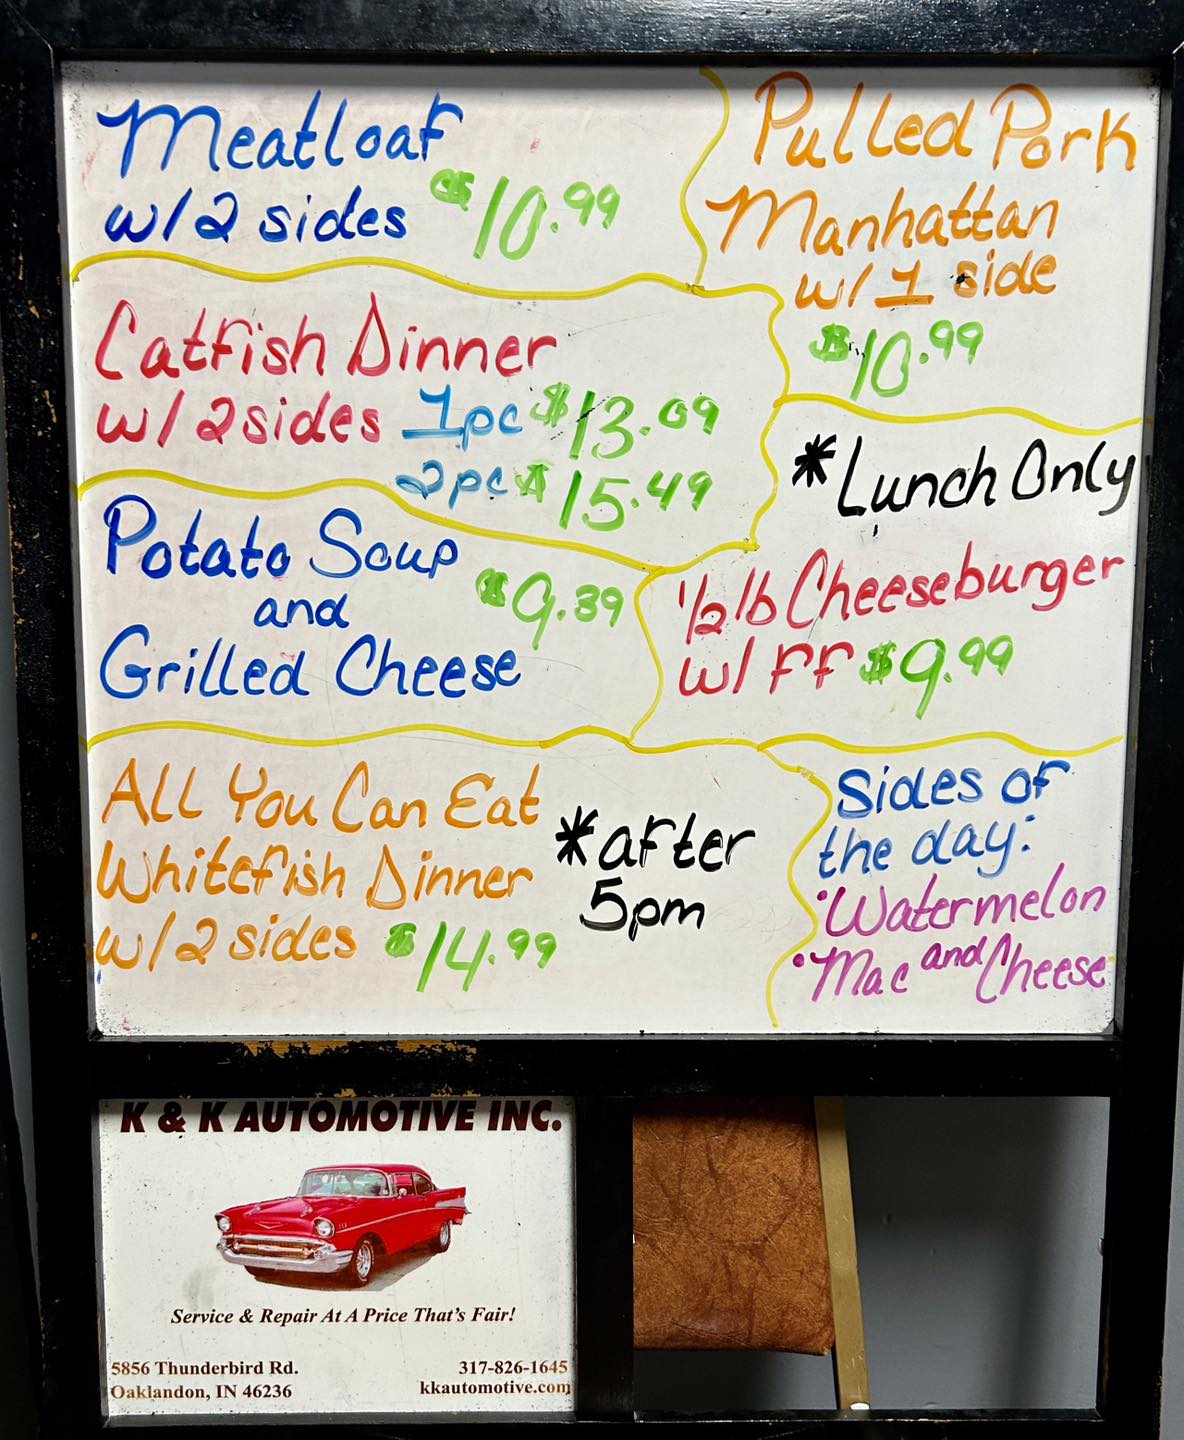 Meatloaf
w/2 sides $10.99
Pulled Pork
Manhattan
w/1 side
$10.99
Catfish Dinner
w/2sides 1pc $13.09
2pc $15.49
Potato Soup
and
Grilled Cheese
$9.39
*Lunch Only
1/2lb Cheeseburger
w/FF $9.99
All You Can Eat
Whitefish Dinner
w/2 sides $14.99
*after
5pm
Sides of
the day:
•Watermelon
•Mac and Cheese
K & K AUTOMOTIVE INC.
Service & Repair At A Price That's Fair!
5856 Thunderbird Rd.
Oaklandon, IN 46236
317-826-1645
kkautomotive.com